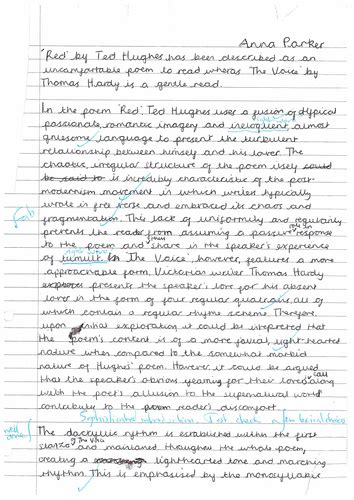 Anna Parker
'Red' by Ted Hughes has been described as an
uncomfortable poem to read wheras 'The Voice' by
Thomas Hardy is a gentle read.
In the poem 'Red', Ted Hughes uses a fusion of atypical
passionate, romantic imagery and ineloquent, almost
gruesome language to present the turbulent
relationship between himself and his lover. The
chaotic, irregular structure of the poem itself could
be said to is incredibly characteristic of the post-
modernism movement in which writers typically
wrote in free verse and embraced its chaos and
fragmentation. This lack of uniformity and regularity
prevents the reader from assuming a passive response
role in
to the poem and share in the speaker's experience
of tumult. In 'The Voice', however, features a more
approachable form, Victorian writer Thomas Hardy
presents the speaker's love for his absent
lover in the form of four regular quatrains, all of
which contain a regular rhyme scheme. Therefore,
upon initial exploration it could be interpreted that
the poem's content is of a more jovial, light-hearted
nature when compared to the somewhat morbid
nature of Hughes' poem. However, it could be argued
that the speaker's obvious yearning for their lover's call
along with the poet's allusion to the supernatural world
contribute to the reader's discomfort.
Sophisticated introduction. Text check a few basic choices
well done
The dactyllic rhythm is established within the first
stanza of The Voice and maintained throughout the whole poem,
creating a lighthearted tone and marching
rhythm. This is emphasised by the monosyllabic